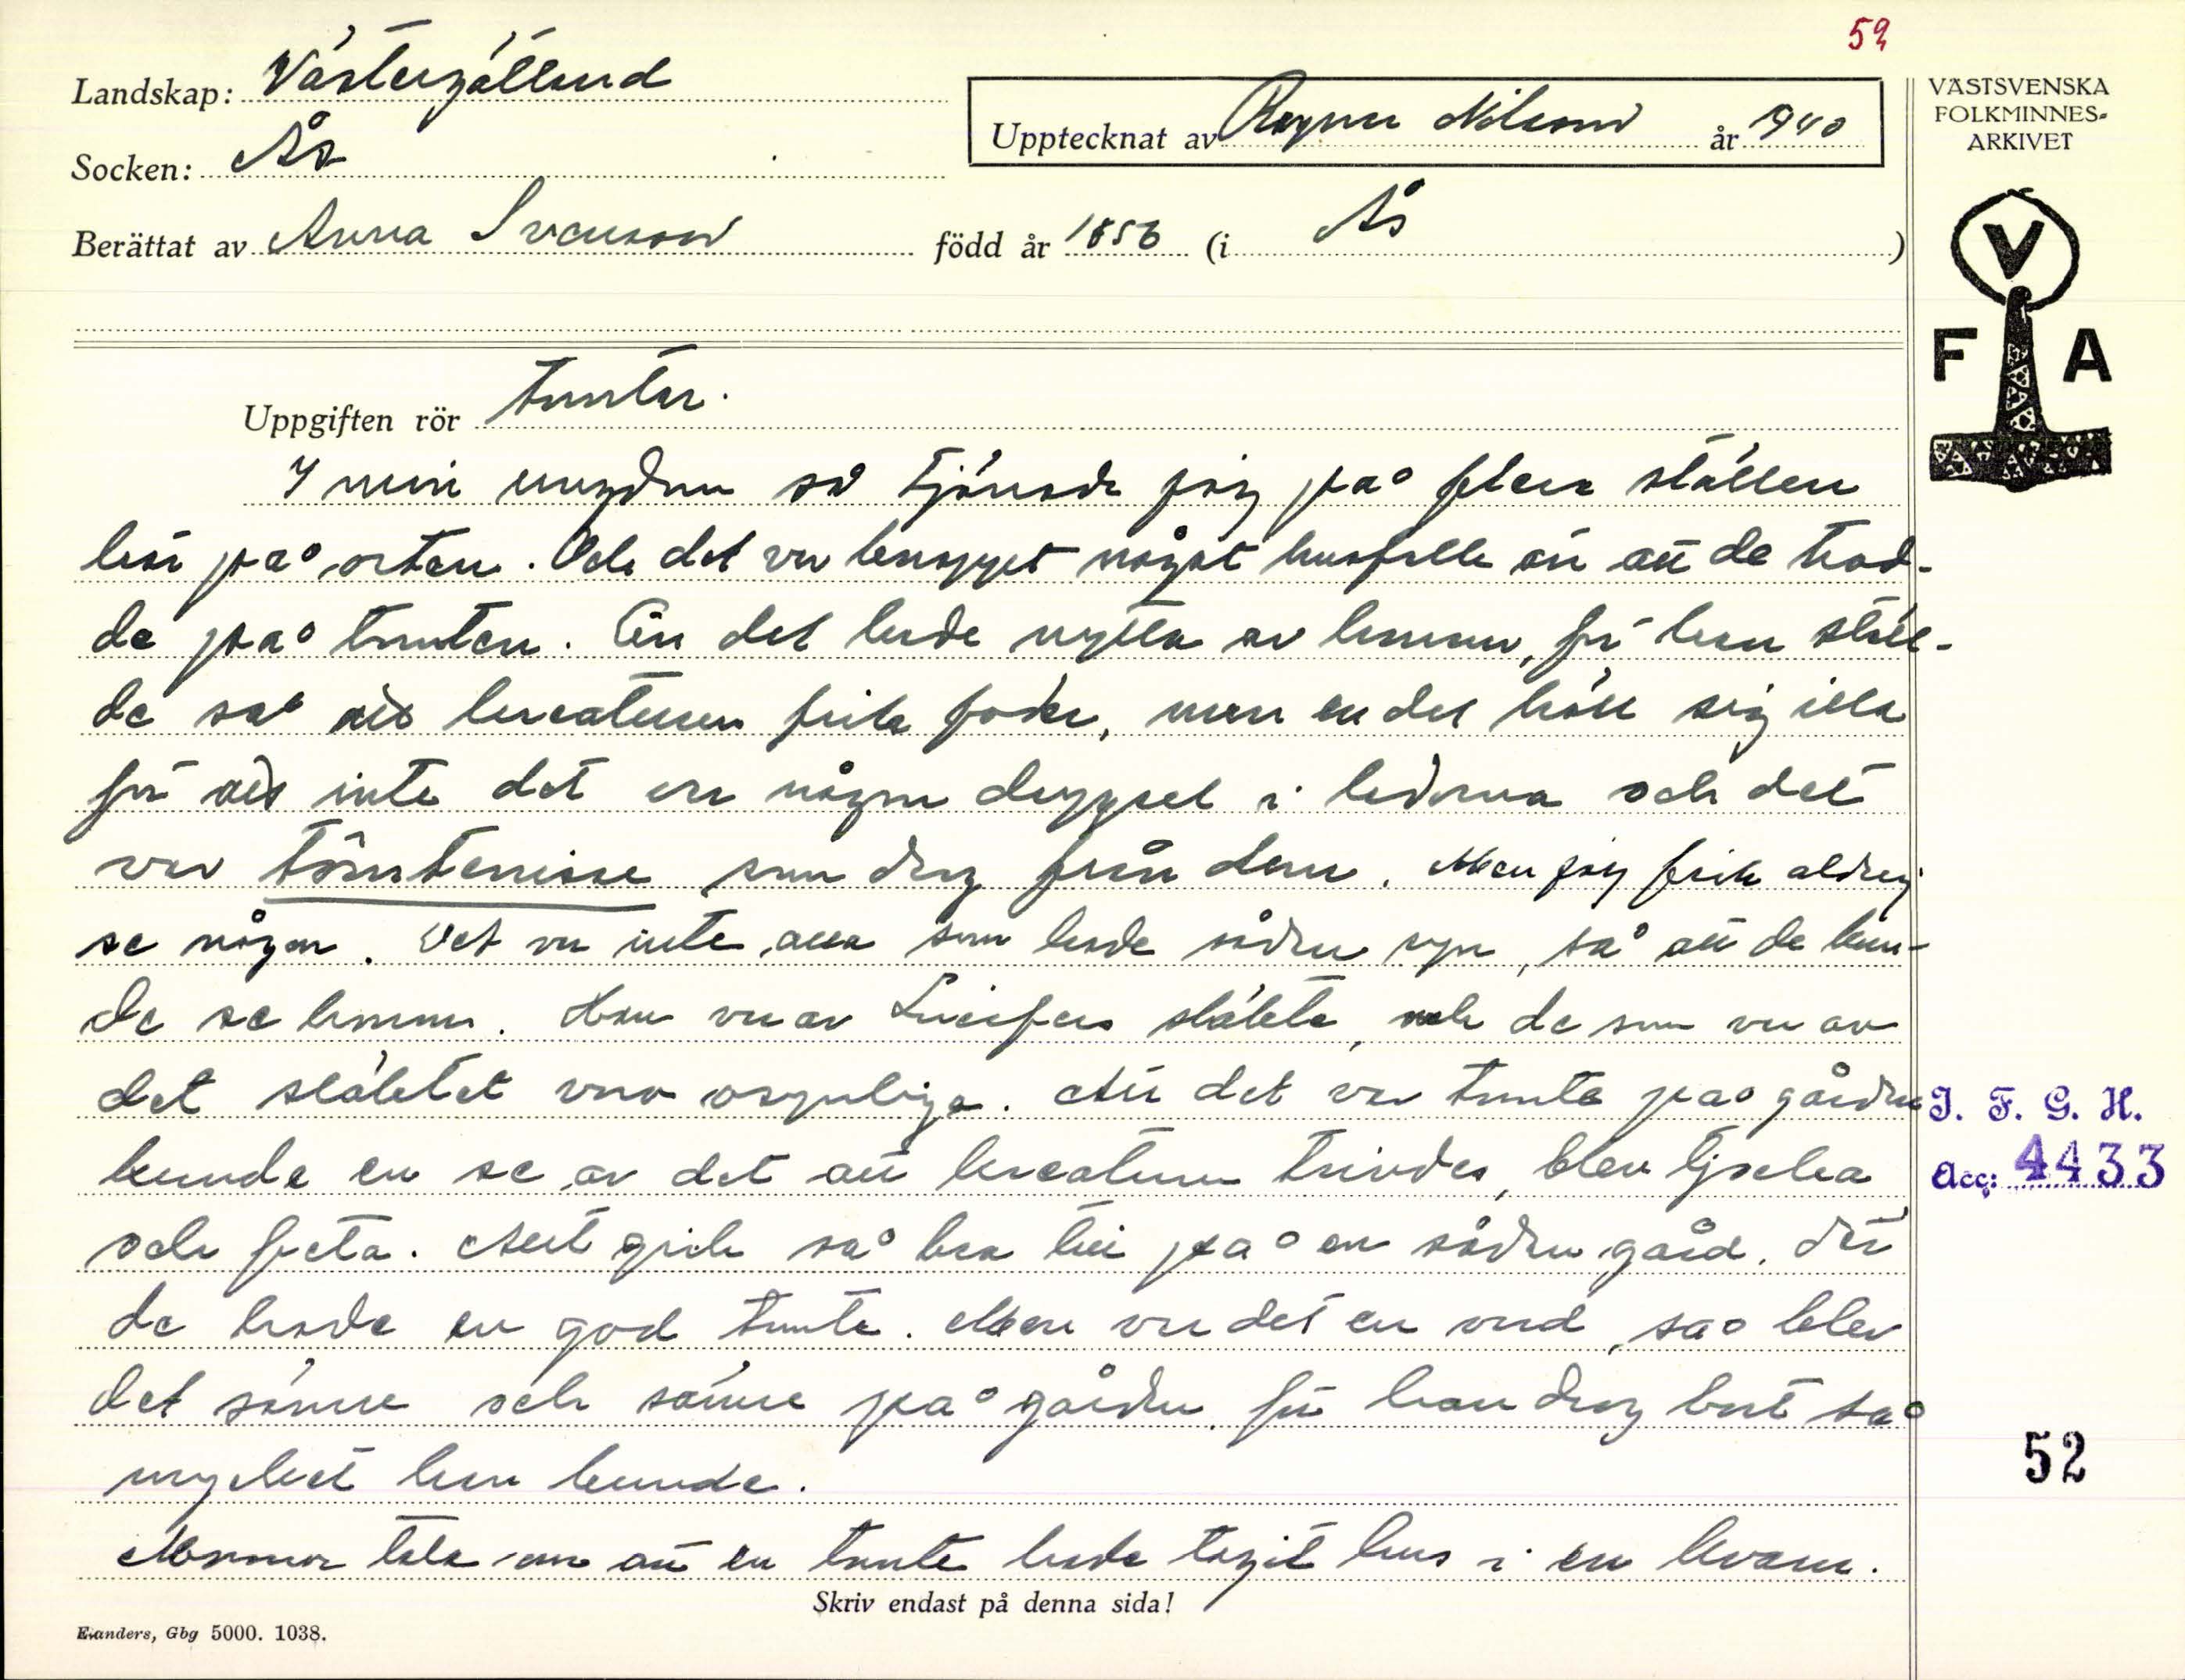 52
Landskap: Västergötland
Socken: Ås
Upptecknat av Ragnar Nilsson år 1940
Berättat av Anna Svensson född år 1856 (i Ås)
VÄSTSVENSKA
FOLKMINNES-
ARKIVET
V
F A
Uppgiften rör tomter.
I min ungdom så tjänade jag på flera ställen
här på orten. Och det var knappt något husfolk än att de trod-
de på tomten. En del hade nytta av honom, för han ställ-
de så att kreaturen fick foder, men en del höll sig illa
för att inte det var någon drygsel i ladorna och det
var tômtenisse som drog från dem. Men jag fick aldrig
se någon. Det var inte alla som hade sådan syn, så att de kun-
de se honom. Han var av Lucifers släkte, och de som var av
det släktet var osynliga. Att det var tomte på gården
kunde en se av det att kreaturen trivdes, blev tjocka
och feta. Allt gick så bra till på en sådan gård, där
de hade en god tomte. Men var det en ond, så blev
det sämre och sämre på gården, för han drog bort så
mycket han kunde.
Mormor tala om att en tomte hade tagit hus i en kvarn.
Skriv endast på denna sida!
Evanders, Gbg 5000. 1038.
I. F. G. H.
Acc: 4433
52